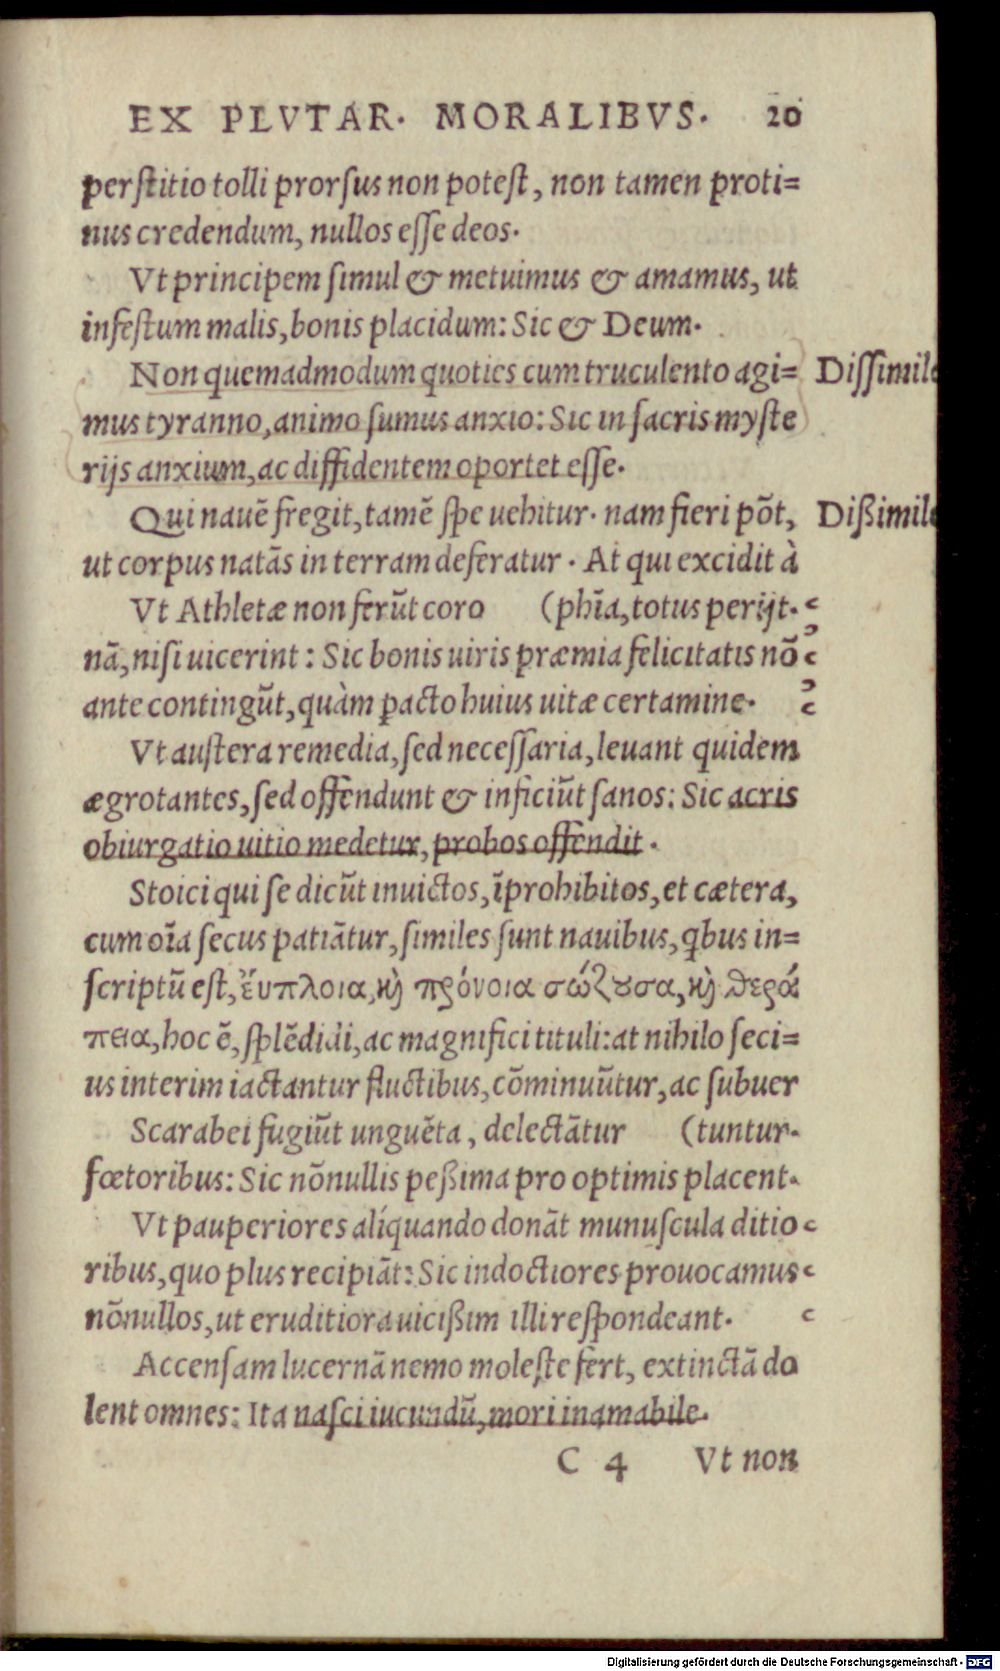 EX PLVTAR. MORALIBVS. 20
perſtitio tolli prorſus non poteſt, non tamen proti=
nus credendum, nullos eſſe deos.
Vt principem ſimul & metuimus & amamus, ut
infeſtum malis, bonis placidum: Sic & Deum.
Non quemadmodum quoties cum truculento agi= Diſſimile
mus tyranno, animo ſumus anxio: Sic in ſacris myſte
rijs anxium, ac diffidentem oportet eſſe.
Qui nauē fregit, tamē ſpe uehitur. nam fieri põt, Dißimile
ut corpus natãs in terram deferatur. At qui excidit à
Vt Athletæ non ferũt coro (phĩa, totus perijt.
nã, niſi uicerint: Sic bonis uiris præmia felicitatis nõ
ante contingũt, quàm pacto huius uitæ certamine.
Vt auſtera remedia, ſed neceſſaria, leuant quidem
ægrotantes, ſed offendunt & inficiũt ſanos: Sic acris
obiurgatio uitio medetur, probos offendit.
Stoici qui ſe dicũt inuictos, ĩprohibitos, et cætera,
cum oĩa ſecus patiãtur, ſimiles ſunt nauibus, qbus in=
ſcriptũ eſt, ἔυπλοια, ϗ̀ πρόνοια σώζȣσα, ϗ̀ θερά
πεια, hoc ẽ, ſplẽdidi, ac magnifici tituli: at nihilo ſeci=
us interim iactantur fluctibus, cõminuũtur, ac ſubuer
Scarabei fugiũt unguẽta, delectãtur (tuntur.
fœtoribus: Sic nõnullis peßima pro optimis placent.
Vt pauperiores alíquando donãt munuſcula ditio
ribus, quo plus recipiãt: Sic indoctiores prouocamus
nõnullos, ut eruditiora uicißim illi reſpondeant.
Accenſam lucernã nemo moleſte fert, extinctã do
lent omnes: Ita naſci iucundũ, mori inamabile.
C 4 Vt non
Digitalisierung gefördert durch die Deutsche Forschungsgemeinschaft - DFG